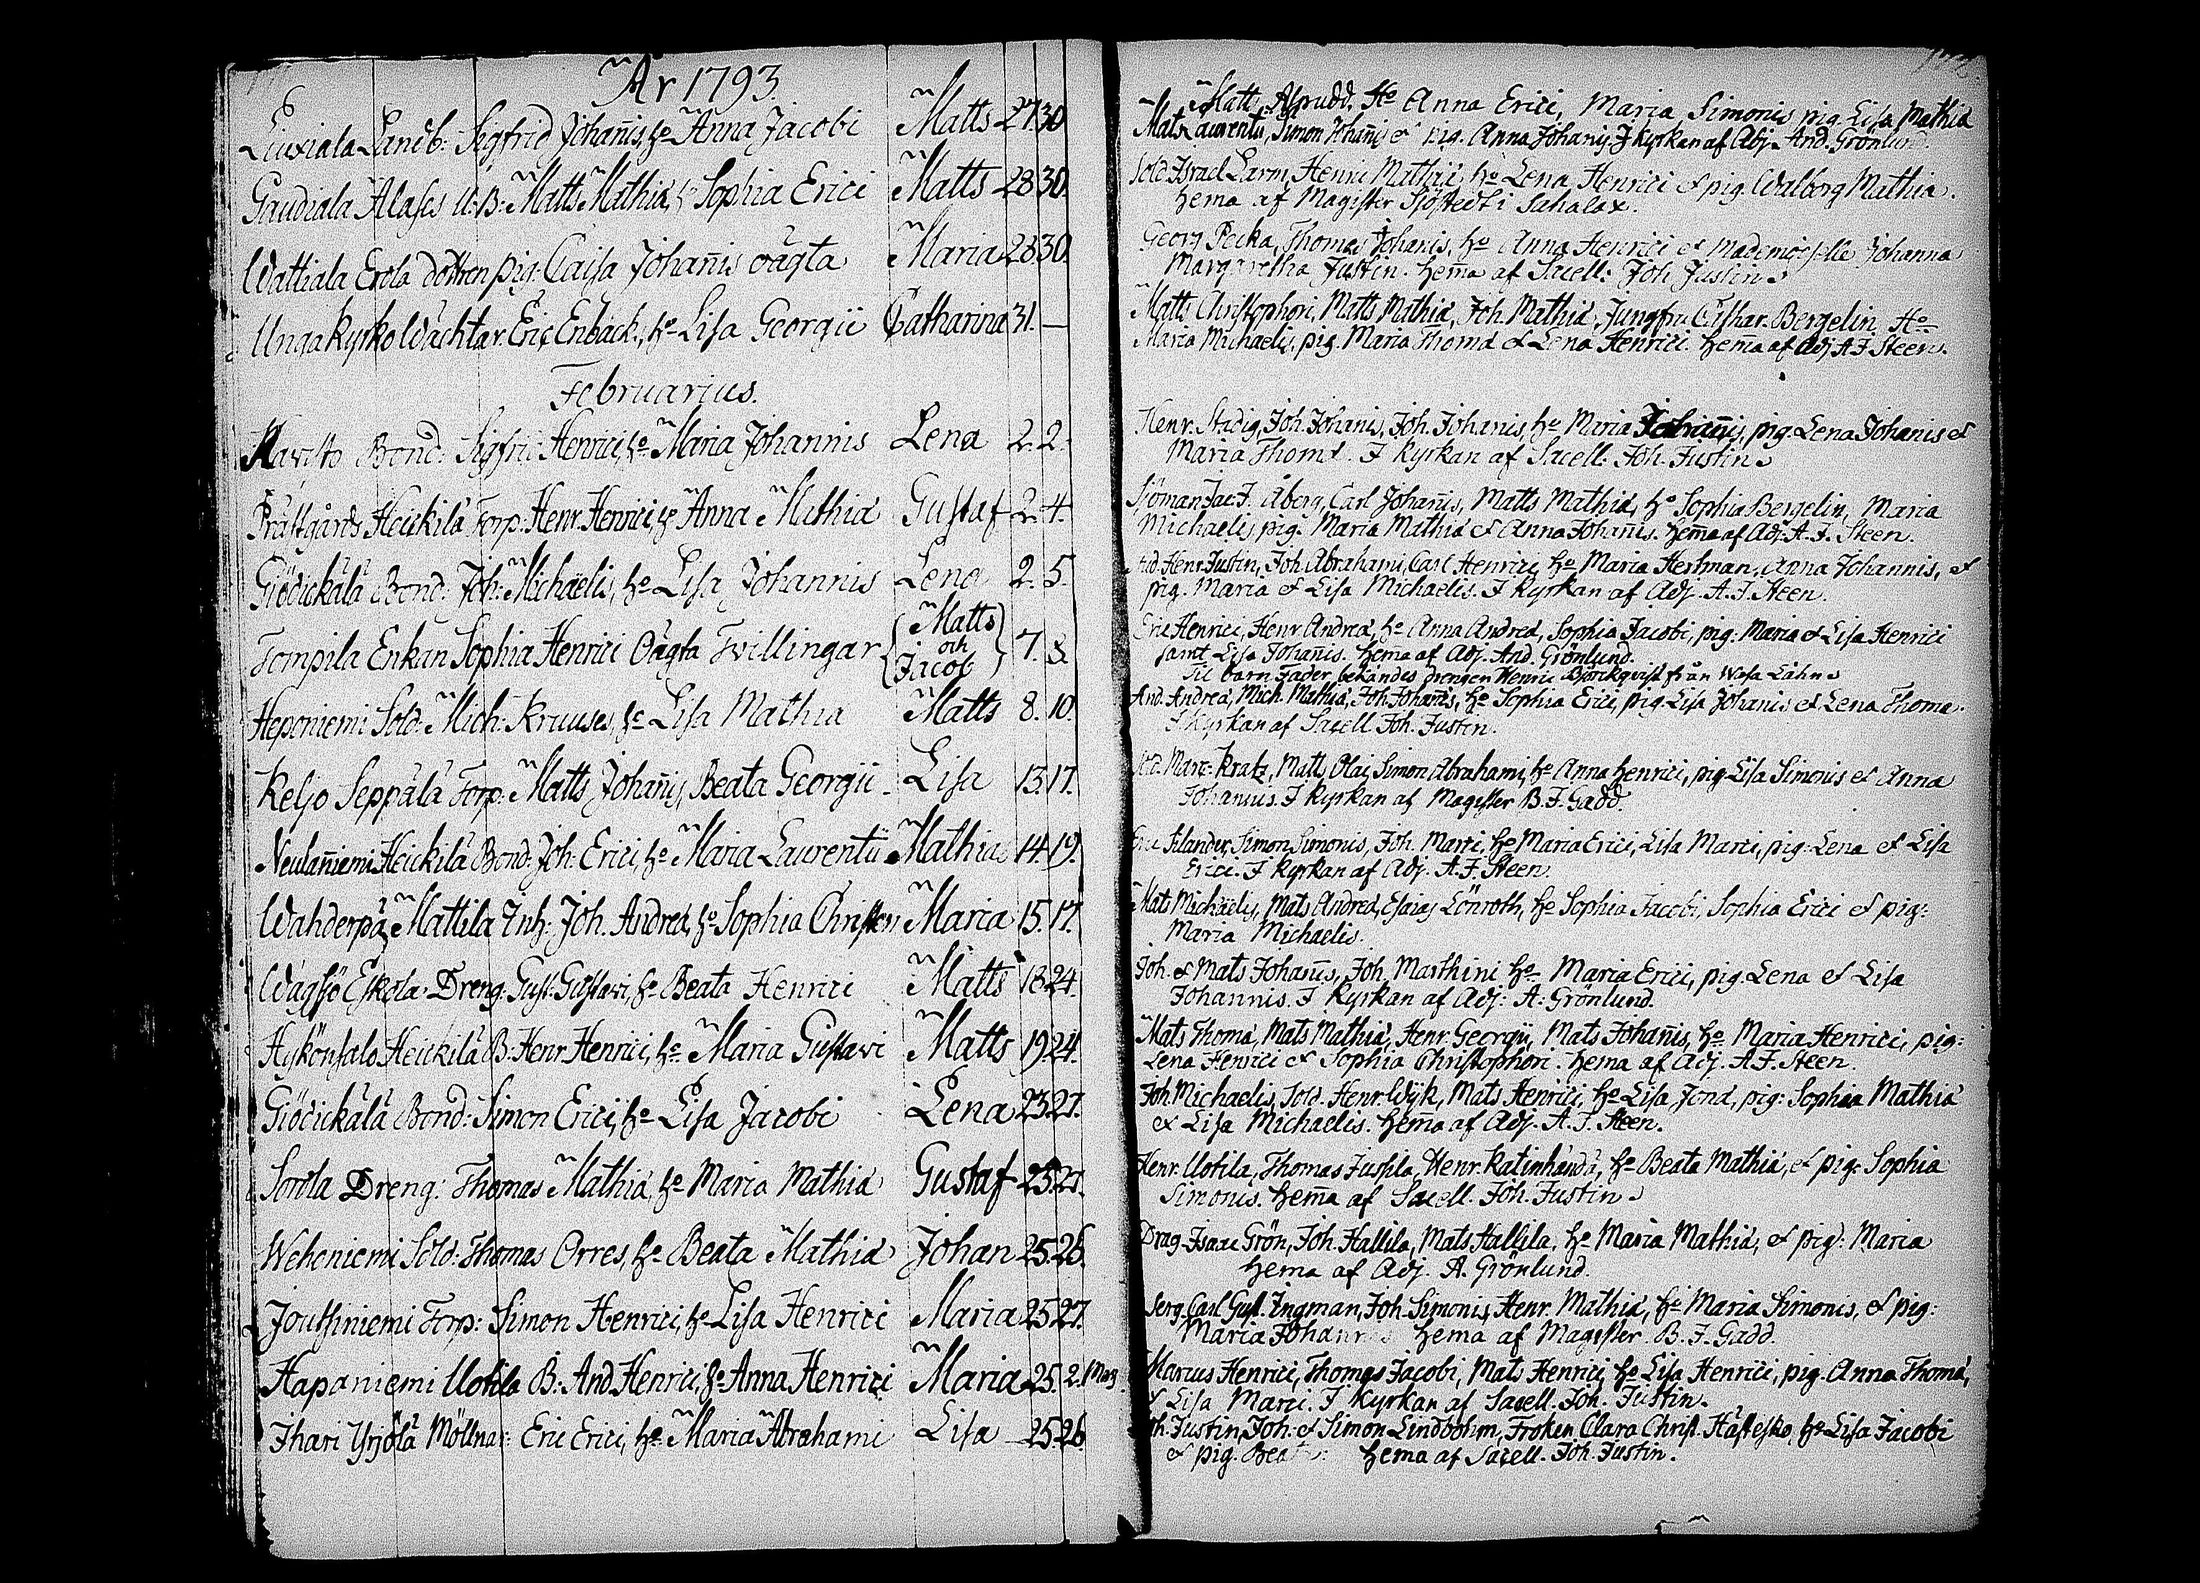 År 1793.
Liuxiala Landb: Sigfrid Johan̄is, ho Anna Jacobi Matts 27. 30
Gaudiala Alases U:B: Matts Mathiæ, ho Sophia Erici Matts 28. 30.
Wattiala Erola dottren pig: Caisa Johan̄is oägta Maria 28. 30.
Unga Kyrko Wächtar Eric Enbäck, ho Lisa Georgii Catharina 31. —
Februarius.
Bond: Sigfrid Henrici, ho Maria Johannis Lena 2. 2.
Prästgårds Heickilä Torp: Henr. Henrici, ho Anna Mathiæ Gustaf 2. 4.
Giödickälä Bond: Joh: Michaelis, ho Lisa Johannis Lena 2. 5.
Tompila Enkan Sophia Henrici Oägta Tvillingar Matts och Jacob 7. 8.
Heponiemi Sold: Mich: Kruuse, ho Lisa Mathiæ Matts 8. 10.
Keljo Seppälä Torp: Matts Johan̄is, Beata Georgii Lisa 13. 17.
Neulan̄iemi Heickilä Bond: Joh: Erici, ho Maria Laurentii Mathias 14. 19.
Wahderpä Mattila Inh: Joh. Andreæ, ho Sophia Christen Maria 15. 17.
Wägsö Eskola Dreng: Gust: Gustavi, ho Beata Henrici Matts 18. 24.
Hykönsalo Heickilä B: Henr. Henrici, ho Maria Gustavi Matts 19. 24.
Giödickälä Bond: Simon Erici, ho Lisa Jacobi Lena 23. 27.
Sorola Dreng: Thomas Mathiæ, ho Maria Mathiæ Gustaf 25. 27.
Wehoniemi Sold: Thomas Orres, ho Beata Mathiæ Johan 25. 26.
Joutsiniemi Torp: Simon Henrici, ho Lisa Henrici Maria 25. 27.
Hapaniemi Uotila B: And. Henrici, ho Anna Henrici Maria 25. 2. Marz
Ihari Yrjölä Möllnar: Eric Erici, ho Maria Abrahami Lisa 25. 26.
Matts Alprudd, Ho Anna Erici, Maria Simonis pig. Lisa Mathiæ
Mats Laurentii, Simon Johan̄is et pig. Anna Johanis. I Kyrkan af Adj. And. Grönlund.
Sold. Israel Larm, Henric Mathiæ, ho Lena Henrici et pig. Walborg Mathiæ.
hema af Magister Sjöstedt i Sahalax.
Georg Pecka, Thomas Johanis, ho Anna Henrici et Mademoiselle Johanna
Margaretha Justin. hem̄a af Sacell: Joh. Justin.
Matts Christophori, Matts Mathiæ, Joh. Mathiæ, Jungfru Cathar. Bergelin Ho
Maria Michaelis, pig. Maria Thomæ et Lena Henrici. hema af Adj. A. J. Steen.
Henr. Stadig, Joh. Johanis, Joh. Johanis, ho Maria Johan̄is, pig. Lena Johanis et
Maria Thomæ. I Kyrkan af Sacell: Joh. Justin.
Sjöman Jac. J. Åberg, Carl Johan̄is, Matts Mathiæ, ho Sophia Bergelin, Maria
Michaelis, pig. Maria Mathiæ et Anna Johan̄is. hem̄a af Adj. A. J. Steen.
Henr. Justin, Joh. Abrahami, Carl Henrici, ho Maria Hertman, Anna Johannis, et
pig. Maria et Lisa Michaelis. I Kyrkan af Adj. A. J. Steen.
Eric Henrici, Henr. Andreæ, ho Anna Andreæ, Sophia Jacobi, pig: Maria et Lisa Henrici
samt Lisa Johan̄is. hema af Adj. And. Grönlund.
Til barn Fader bekändes drengen Henric Björckqvist från Wasa Lähn
And. Andreæ, Mich. Mathiæ, Joh. Johan̄is, ho Sophia Erici, pig. Lisa Johanis et Lena Thomæ.
I Kyrkan af Sacell. Joh. Justin.
Sold. Marc. Kratz, Matts Olai, Simon Abrahami, ho Anna Henrici, pig. Lisa Simonis et Anna
Johannis. I Kyrkan af Magister B. J. Gadd.
Eric Silander, Simon Simonis, Joh. Marci, ho Maria Erici, Lisa Marci, pig. Lena et Lisa
Erici. I Kyrkan af Adj. A. J. Steen.
Mats Michaelis, Mats Andreæ, Esaias Lönroth, ho Sophia Jacobi, Sophia Erici et pig:
Maria Michaelis.
Joh. et Mats Johan̄is, Joh. Marthini ho Maria Erici, pig. Lena et Lisa
Johannis. I Kyrkan af Adj: A: Grönlund.
Mats Thomæ, Mats Mathiæ, Henr. Georgii, Mats Johan̄is, ho Maria Henrici, pig:
Lena Henrici et Sophia Christophori. hema af Adj. A. J. Steen.
Joh. Michaelis, Sold. Henr. Wijk, Mats Henrici, ho Lisa Jonæ, pig: Sophia Mathiæ
et Lisa Michaelis. hem̄a af Adj. A. J. Steen.
Henr. Uotila, Thomas Jussila, Henr. Katinhändä, ho Beata Mathiæ, et pig: Sophia
Simonis. hem̄a af Sacell. Joh. Justin.
Drag. Isaac Grön, Joh. Hallila, Mats Hallila, ho Maria Mathiæ, et pig: Maria
hema af Adj. A. Grönlund.
Serg. Carl Gust. Ingman, Joh. Simonis, Henr. Mathiæ, ho Maria Simonis, et pig:
Maria Johannis hema af Magister B. J. Gadd.
Marcus Henrici, Thomas Jacobi, Mats Henrici, ho Lisa Henrici, pig. Anna Thomæ,
et Lisa Marci. I Kyrkan af Sacell. Joh. Justin.
Joh. Justin, Joh. et Simon Lindbohm, Fröken Clara Christ. Hästesko, ho Lisa Jacobi
et pig. Beata hema af Sacell. Joh. Justin.